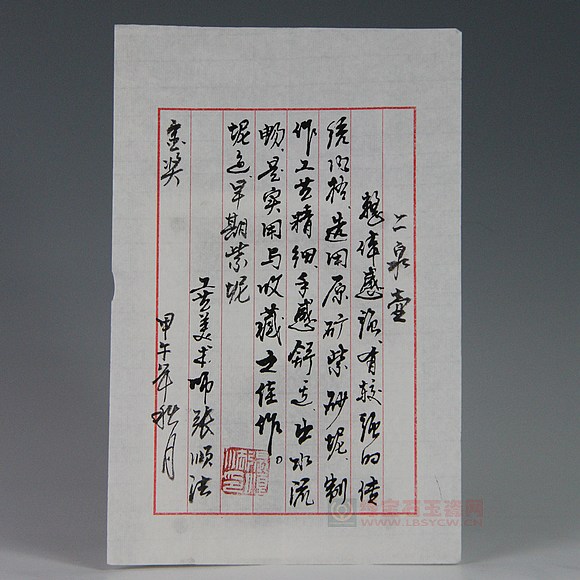 二泉壶
整体感强、有较强的传
统风格、选用原矿紫砂坭、制
作工艺精细、手感舒适、出水流
畅、是实用与收藏之佳作。
坭色、早期紫坭
工艺美术师张顺法
奖
甲午年秋月
WWW.LBSYCW.CN